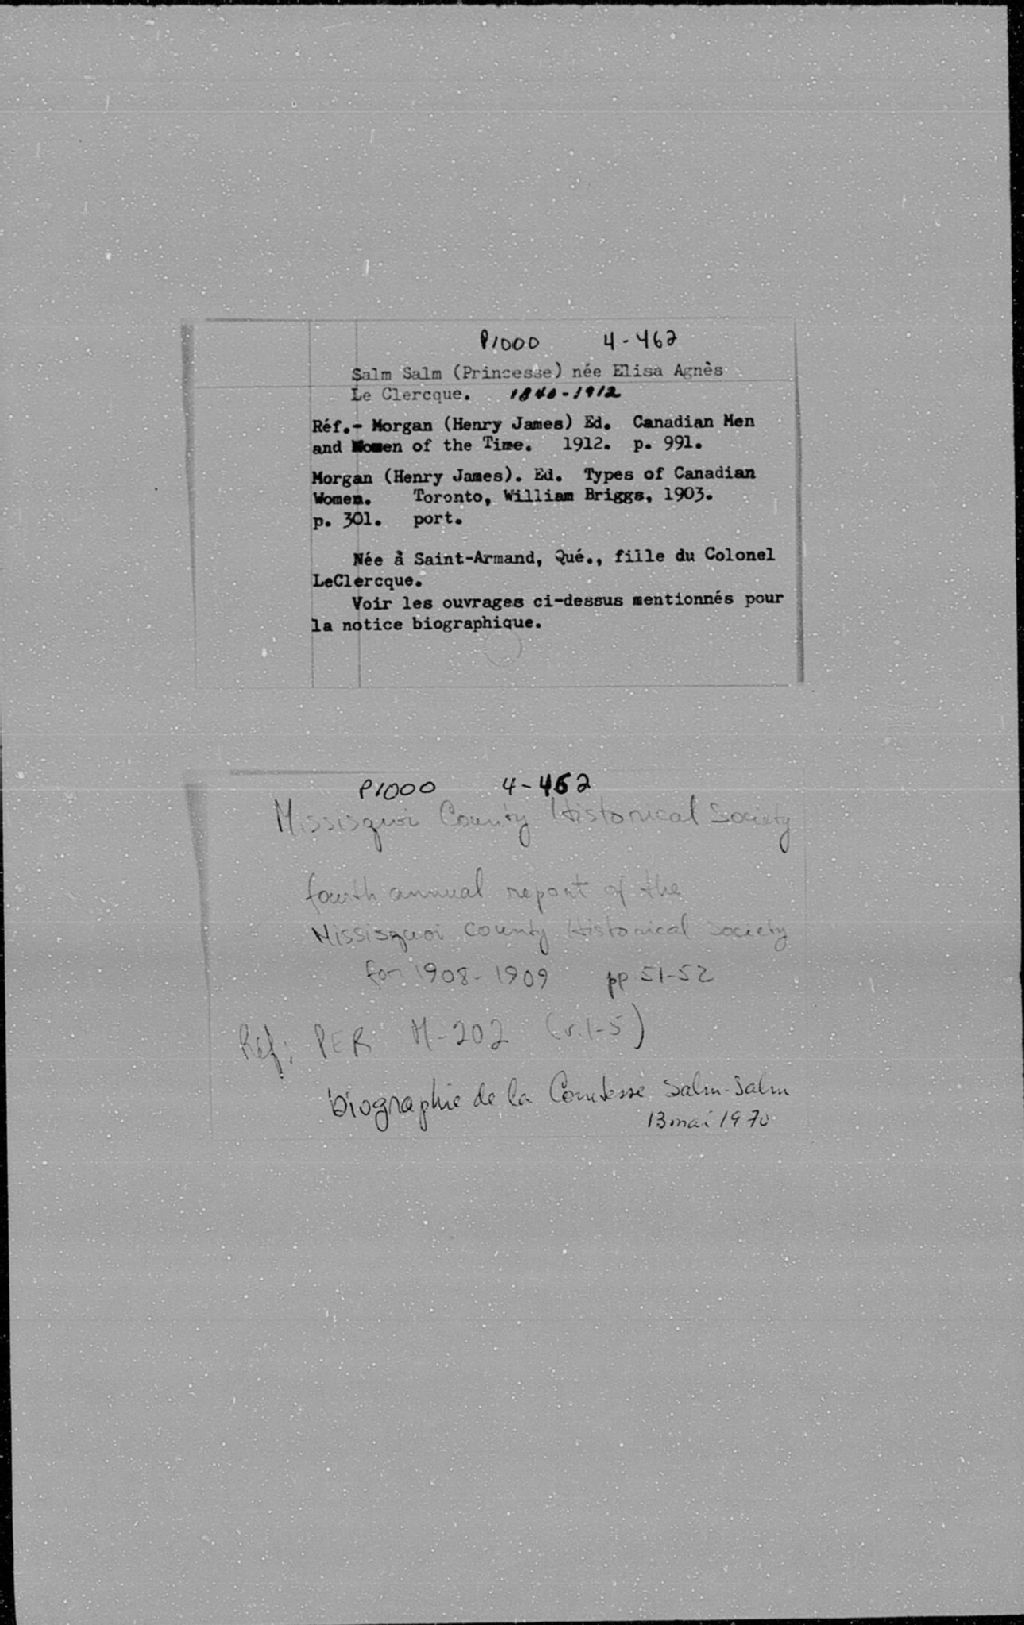 P1000 4-462
Salm Salm (Princesse) née Elisa Agnès
Le Clercque. 1840-1912
Réf.- Morgan (Henry James) Ed. Canadian Men
and Women of the Time. 1912. p. 991.
Morgan (Henry James). Ed. Types of Canadian
Women. Toronto, William Briggs, 1903.
p. 301. port.
Née à Saint-Armand, Qué., fille du Colonel
LeClercque.
Voir les ouvrages ci-dessus mentionnés pour
la notice biographique.
P1000 4-462
Missisquoi County Historical Society
fourth annual report of the
Missisquoi County Historical Society
for 1908-1909 pp 51-52
Réf: PER M-202 (v.1-5)
biographie de la Comtesse Salm-Salm
13 mai 1970